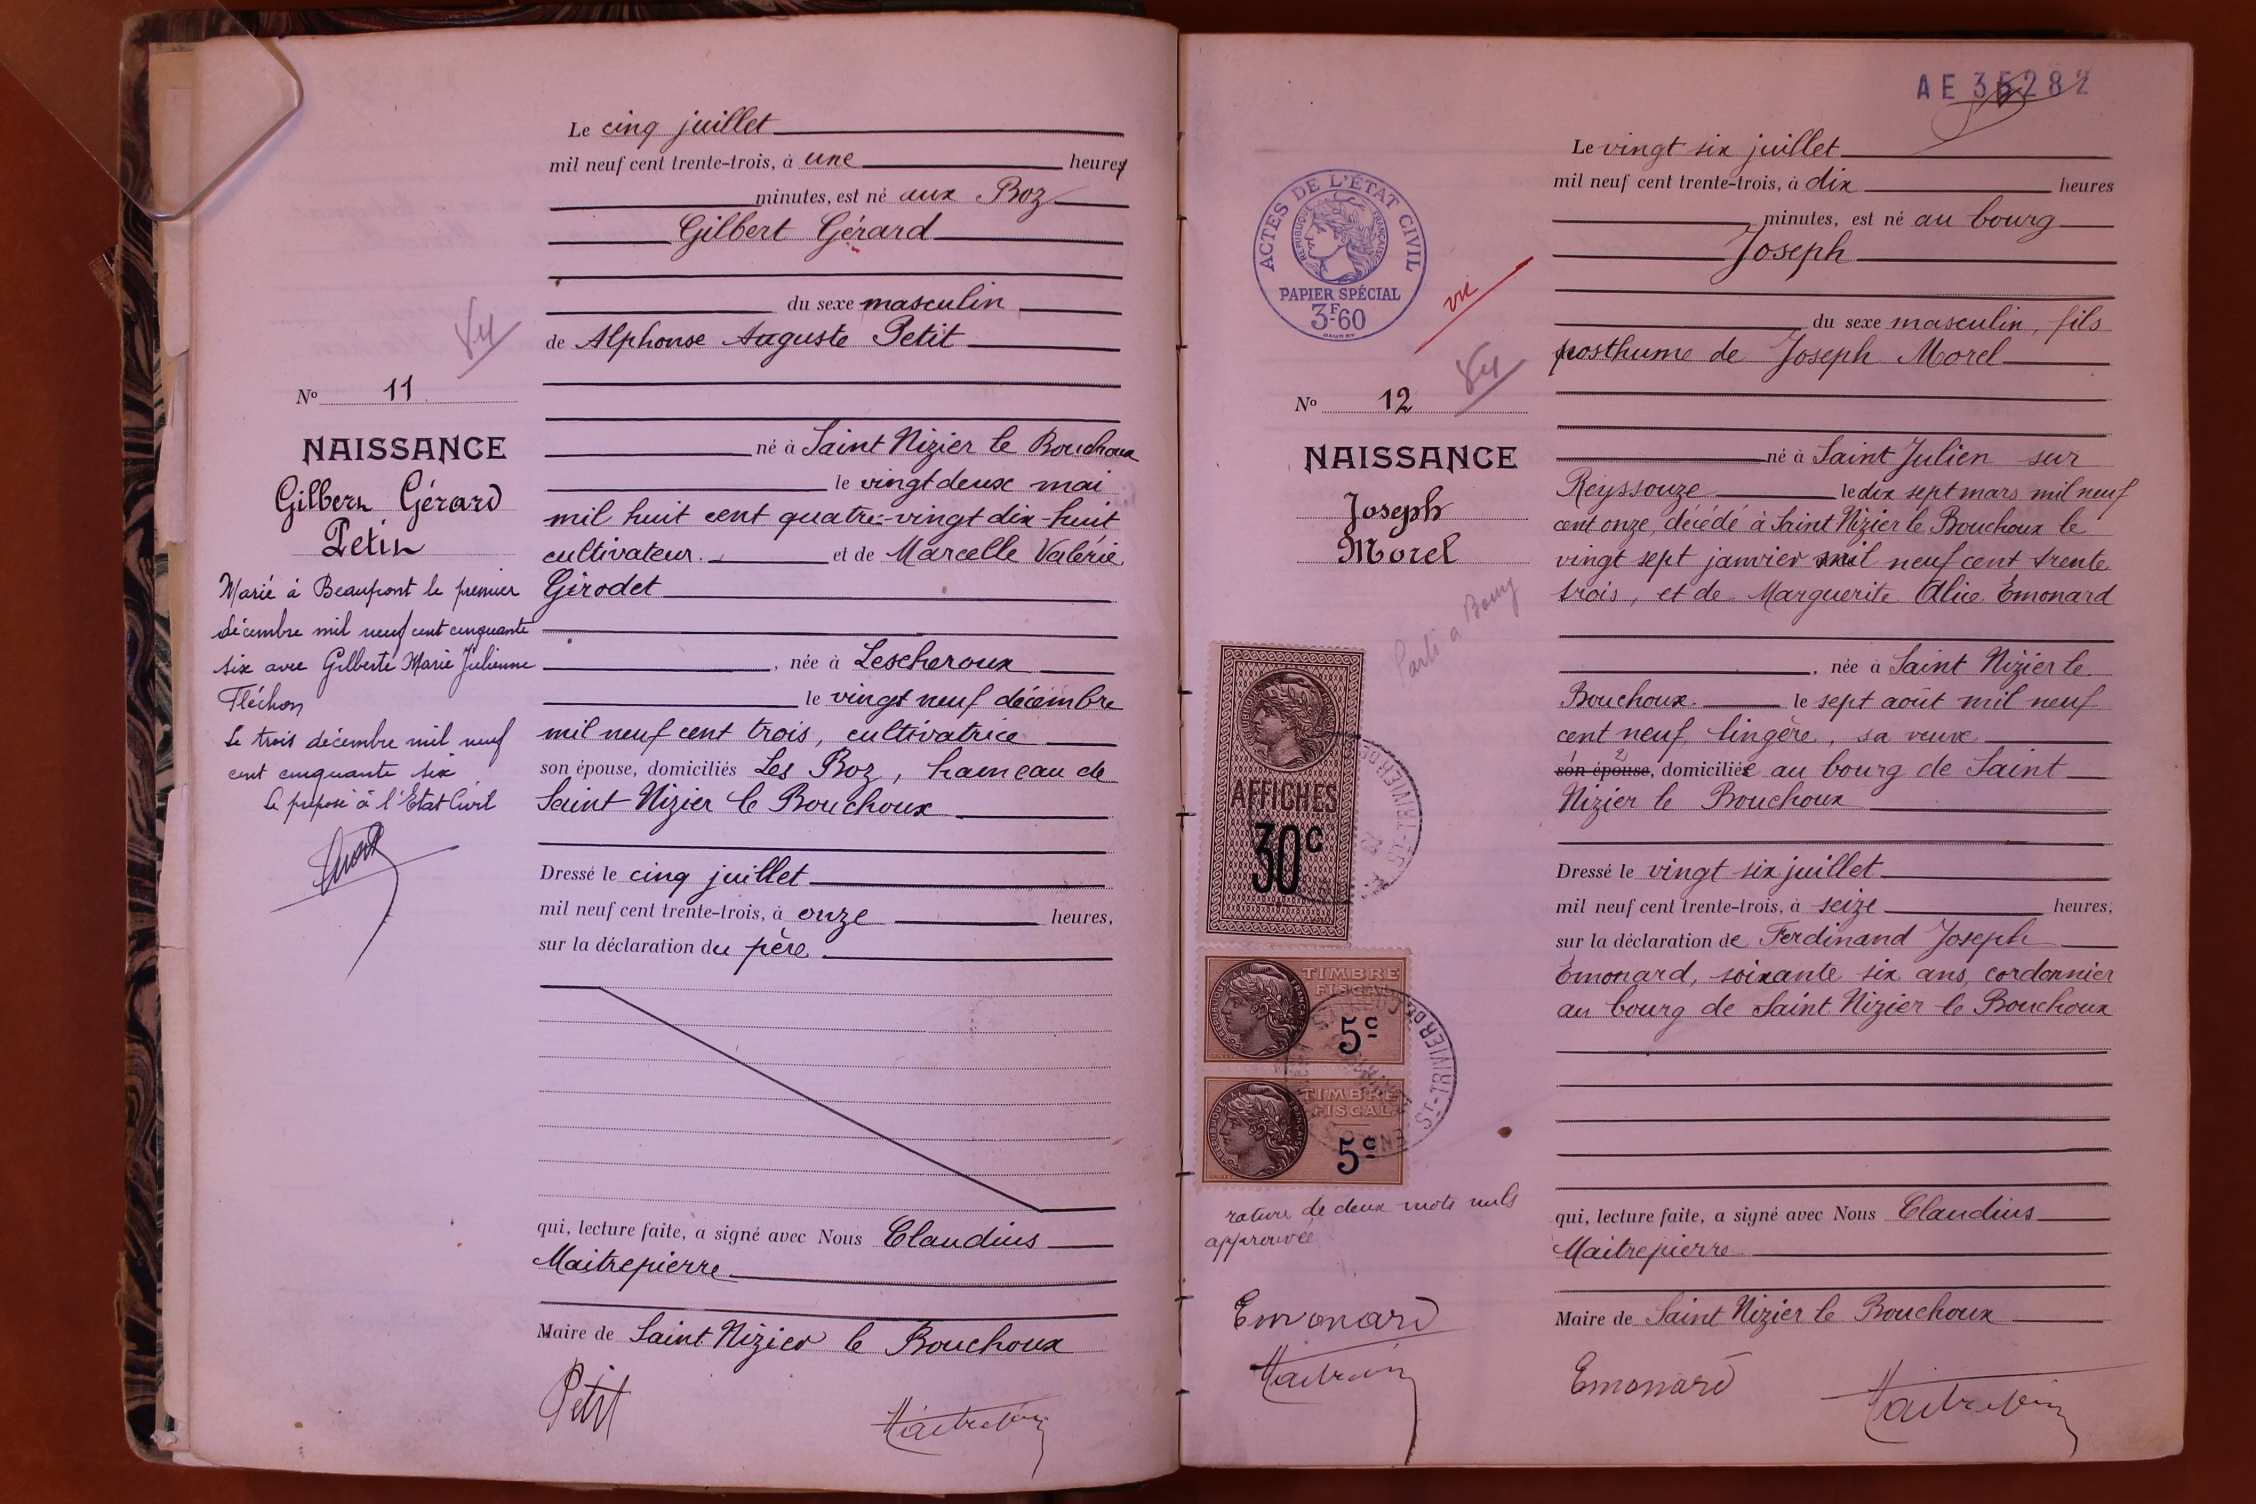 Le cinq juillet
mil neuf cent trente-trois, à une heures
minutes, est né aux Boz
Gilbert Gérard
du sexe masculin
de Alphonse Auguste Petit
né à Saint Nizier le Bouchoux
le vingt deux mai
mil huit cent quatre-vingt dix-huit
cultivateur. et de Marcelle Valérie
Girodet
, née à Lescheroux
le vingt neuf décembre
mil neuf cent trois, cultivatrice
son épouse, domiciliés Les Boz, hameau de
Saint Nizier le Bouchoux
Dressé le cinq juillet
mil neuf cent trente-trois, à onze heures,
sur la déclaration du père
qui, lecture faite, a signé avec Nous Claudius
Maitrepierre
Maire de Saint Nizier le Bouchoux
Petit
84
No 11
NAISSANCE
Gilbert Gérard
Petit
Marié à Beaupont le premier
décembre mil neuf cent cinquante
six avec Gilberte Marie Julienne
Fléchon
Le trois décembre mil neuf
cent cinquante six
Le préposé à l'Etat Civil
AE 35282
ACTES DE L'ÉTAT CIVIL
RÉPUBLIQUE FRANÇAISE
PAPIER SPÉCIAL
3F-60
vu
84
No 12
NAISSANCE
Joseph
Morel
Parti a Bourg
AFFICHES
30c
TIMBRE
FISCAL
5c
TIMBRE
FISCAL
5c
ST-TRIVIER DE
rature de deux mots nuls
approuvée
Emonard
Le vingt six juillet
mil neuf cent trente-trois, à dix heures
minutes, est né au bourg
Joseph
du sexe masculin, fils
posthume de Joseph Morel
né à Saint Julien sur
Reyssouze le dix sept mars mil neuf
cent onze, décédé à Saint Nizier le Bouchoux le
vingt sept janvier mil neuf cent trente
trois, et de Marguerite Alice Emonard
, née à Saint Nizier le
Bouchoux. le sept août mil neuf
cent neuf, lingère, sa veuve
son épouse, domiciliée au bourg de Saint
Nizier le Bouchoux
Dressé le vingt six juillet
mil neuf cent trente-trois, à seize heures,
sur la déclaration de Ferdinand Joseph
Emonard, soixante six ans, cordonnier
au bourg de Saint Nizier le Bouchoux
qui, lecture faite, a signé avec Nous Claudius
Maitrepierre
Maire de Saint Nizier le Bouchoux
Emonard